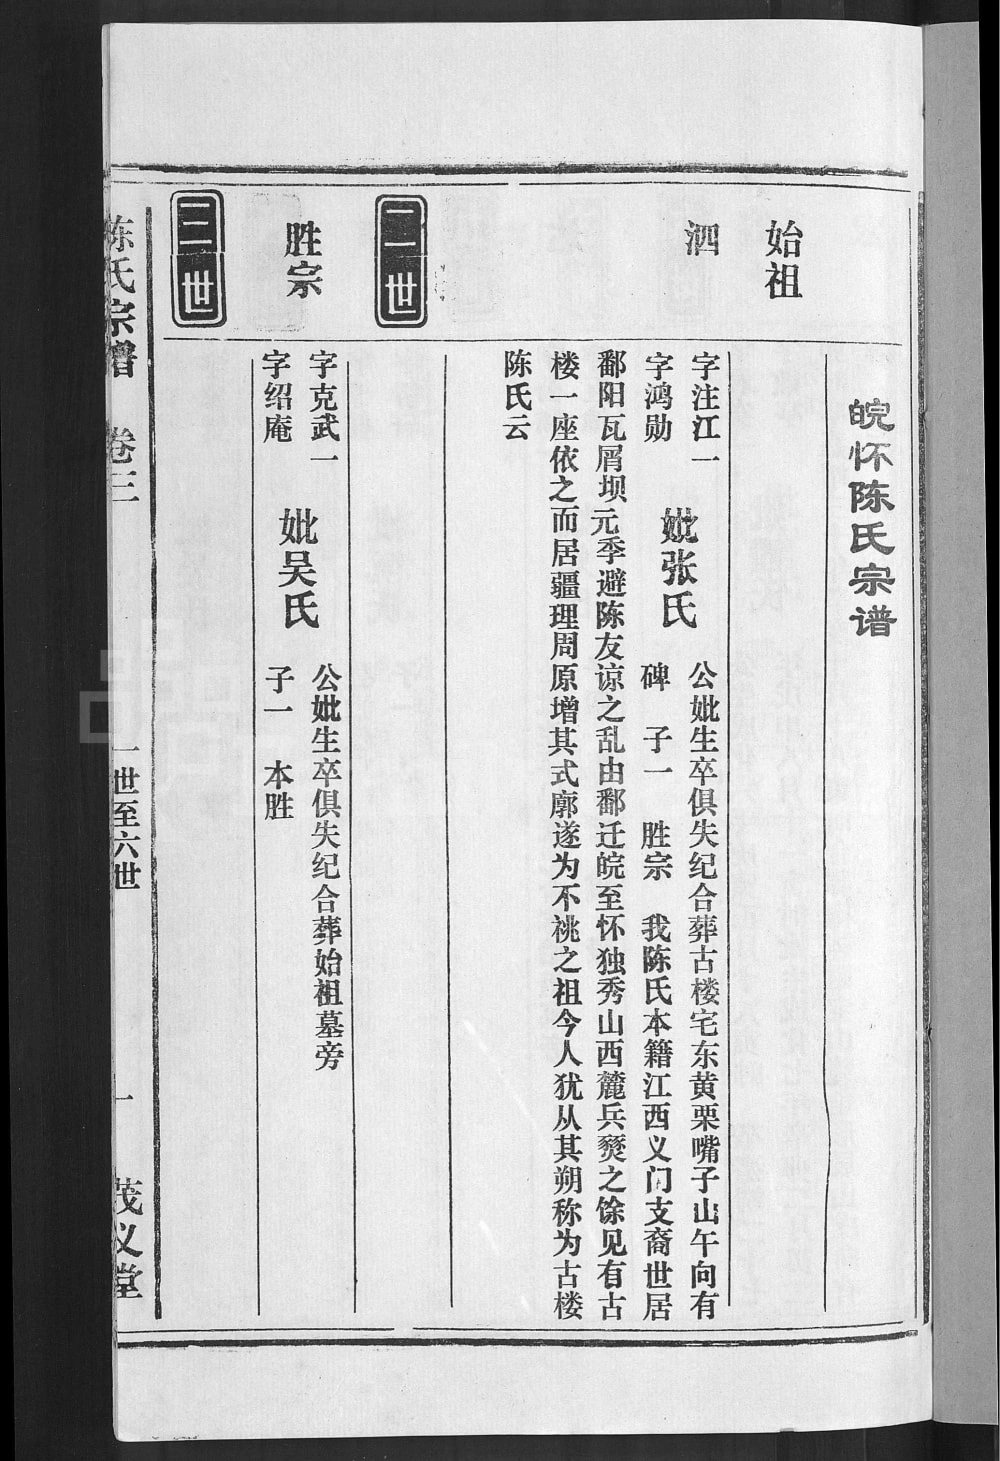 皖怀陈氏宗谱
始祖
泗
字注江一
字鸿勋
妣张氏
公妣生卒俱失纪合葬古楼宅东黄栗嘴子山午向有
碑 子一 胜宗 我陈氏本籍江西义门支裔世居
鄱阳瓦屑坝元季避陈友谅之乱由鄱迁皖至怀独秀山西麓兵燹之馀见有古
楼一座依之而居疆理周原增其式廓遂为不祧之祖今人犹从其朔称为古楼
陈氏云
二世
胜宗
字克武一
字绍庵
妣吴氏
公妣生卒俱失纪合葬始祖墓旁
子一 本胜
三世
陈氏宗谱 卷三 一世至六世 一 茂义堂